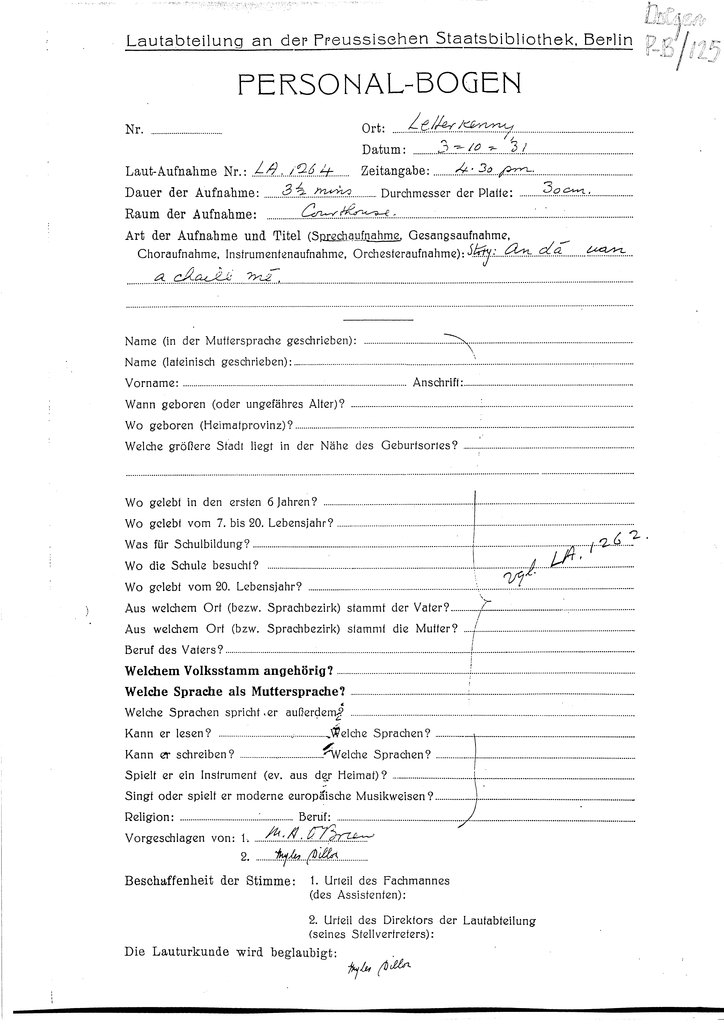 Doegen
P-B/125
Lautabteilung an der Preussischen Staatsbibliothek, Berlin
PERSONAL-BOGEN
Nr.
Ort: Letterkenny
Datum: 3-10-'31
Laut-Aufnahme Nr.: LA. 1264 Zeitangabe: 4.30 pm
Dauer der Aufnahme: 3½ mins Durchmesser der Platte: 30 cm.
Raum der Aufnahme: Courthouse.
Art der Aufnahme und Titel (Sprechaufnahme, Gesangsaufnahme,
Choraufnahme, Instrumentenaufnahme, Orchesteraufnahme): Story: An dá uan
a chaill mé.
Name (in der Muttersprache geschrieben):
Name (lateinisch geschrieben):
Vorname: Anschrift:
Wann geboren (oder ungefähres Alter)?
Wo geboren (Heimatprovinz)?
Welche größere Stadt liegt in der Nähe des Geburtsortes?
Wo gelebt in den ersten 6 Jahren?
Wo gelebt vom 7. bis 20. Lebensjahr?
Was für Schulbildung?
Wo die Schule besucht?
vgl. LA. 1262.
Wo gelebt vom 20. Lebensjahr?
Aus welchem Ort (bezw. Sprachbezirk) stammt der Vater?
Aus welchem Ort (bzw. Sprachbezirk) stammt die Mutter?
Beruf des Vaters?
Welchem Volksstamm angehörig?
Welche Sprache als Muttersprache?
Welche Sprachen spricht er außerdem?
Kann er lesen? Welche Sprachen?
Kann er schreiben? Welche Sprachen?
Spielt er ein Instrument (ev. aus der Heimat)?
Singt oder spielt er moderne europäische Musikweisen?
Religion: Beruf:
Vorgeschlagen von: 1. M. A. O'Brien
2. Myles Dillon
Beschaffenheit der Stimme: 1. Urteil des Fachmannes
(des Assistenten):
2. Urteil des Direktors der Lautabteilung
(seines Stellvertreters):
Die Lauturkunde wird beglaubigt:
Myles Dillon